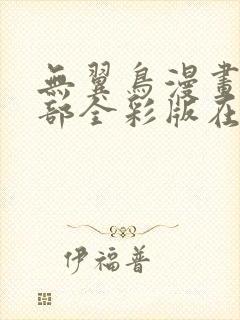 無翼鳥漫畫
部全彩版在
伊福普